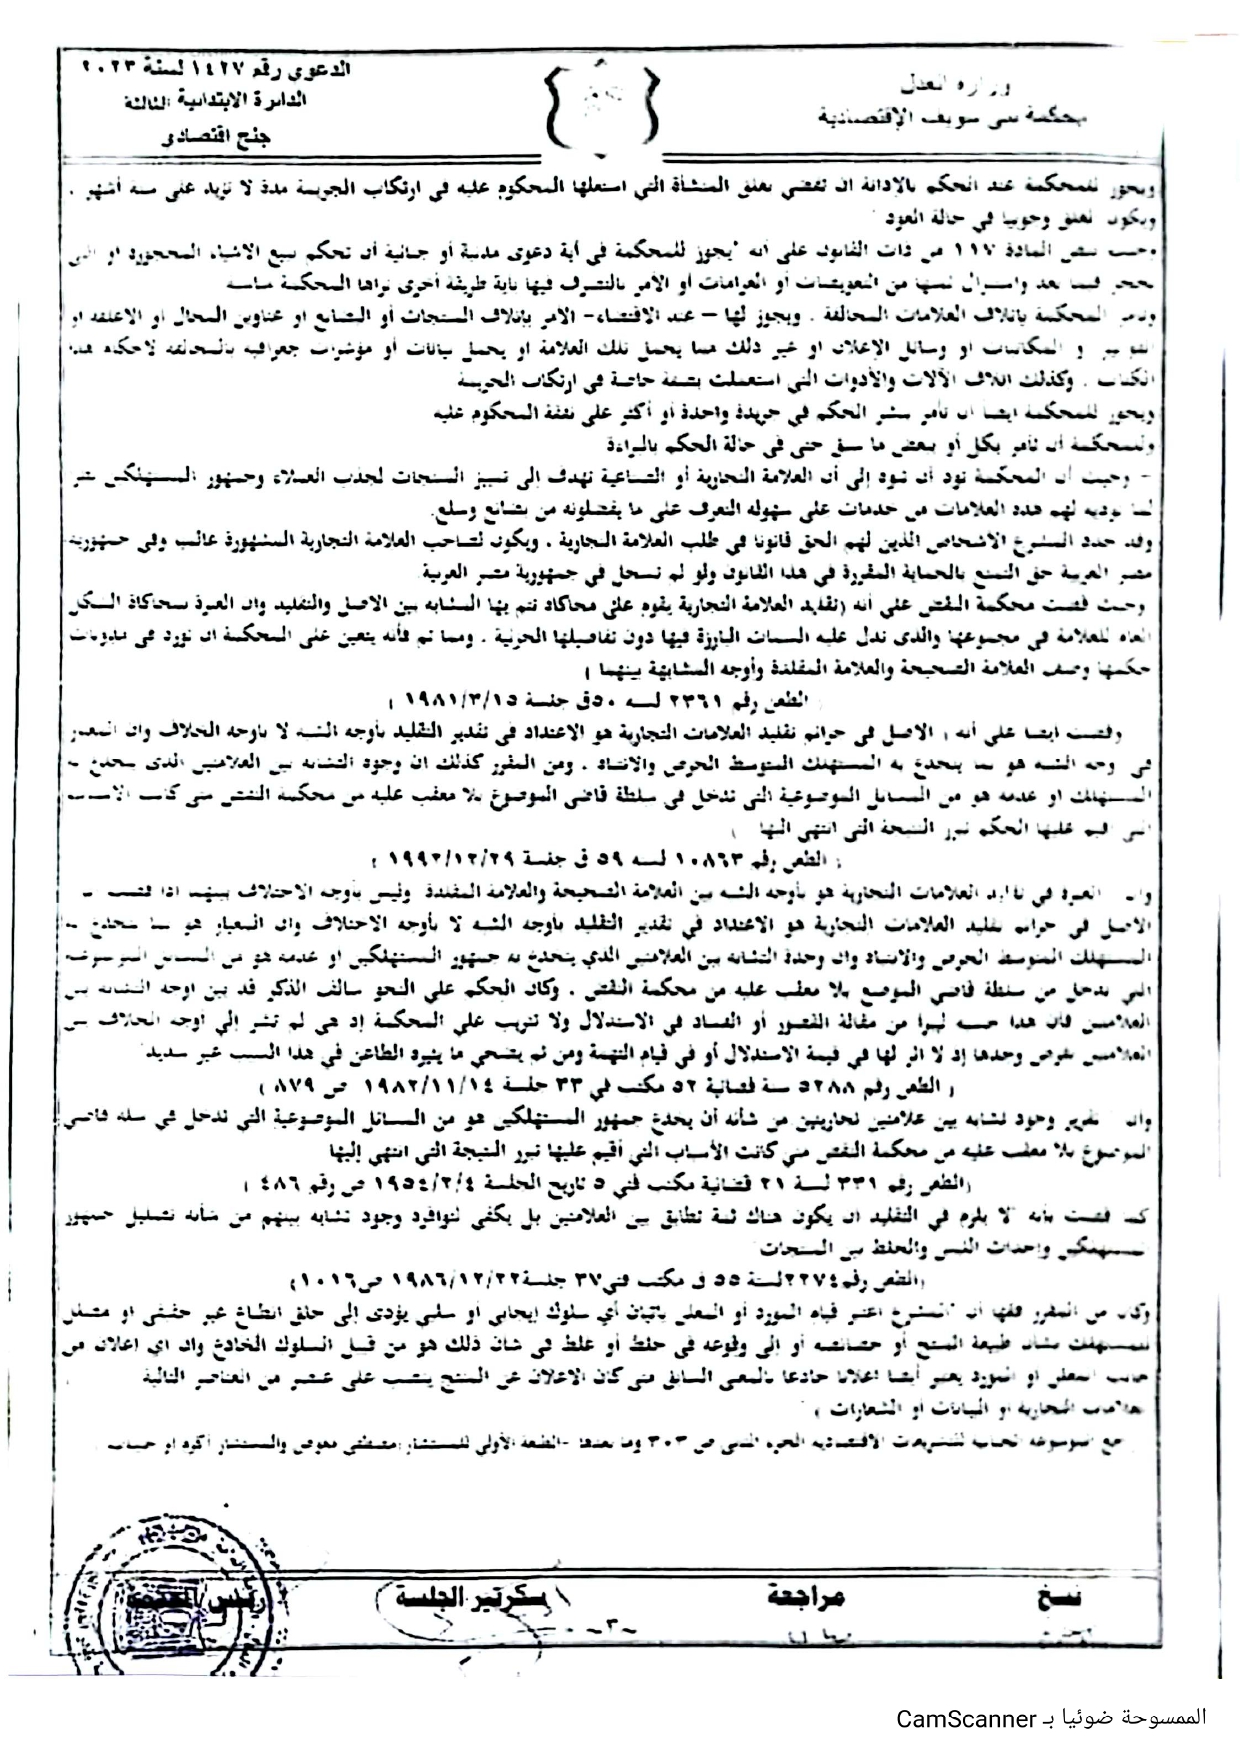 وزارة العدل
محكمة بنى سويف الإقتصادية
الدعوى رقم ١٤٢٧ لسنة ٢٠٢٣
الدائرة الابتدائية الثالثة
جنح اقتصادى
ويجوز للمحكمة عند الحكم بالإدانة ان تقضي بغلق المنشأة التي استغلها المحكوم عليه في ارتكاب الجريمة مدة لا تزيد على ستة أشهر .
ويكون الغلق وجوبيا في حالة العود
وحيث تنص المادة ١١٧ من ذات القانون على أنه "يجوز للمحكمة في أية دعوى مدنية أو جنائية أن تحكم ببيع الاشياء المحجوزة او التي
تحجز فيما بعد واستنزال ثمنها من التعويضات أو الغرامات أو الأمر بالتصرف فيها بأية طريقة أخرى تراها المحكمة مناسبة
وتأمر المحكمة بإتلاف العلامات المخالفة . ويجوز لها – عند الاقتضاء- الامر بإتلاف المنتجات أو البضائع او عناوين المحال او الاغلفة او
الفواتير و المكاتبات او وسائل الإعلان او غير ذلك مما يحمل تلك العلامة او يحمل بيانات أو مؤشرات جغرافية بالمخالفة لاحكام هذا
الكتاب . وكذلك اتلاف الآلات والأدوات التي استعملت بصفة خاصة في ارتكاب الجريمة
ويجوز للمحكمة ايضا ان تأمر بنشر الحكم في جريدة واحدة أو أكثر على نفقة المحكوم عليه
وللمحكمة أن تأمر بكل أو ببعض ما سبق حتى فى حالة الحكم بالبراءة
- وحيث أن المحكمة تود أن تنوه إلى أن العلامة التجارية أو الصناعية تهدف إلى تمييز المنتجات لجذب العملاء وجمهور المستهلكين
لما تؤديه لهم هذه العلامات من خدمات على سهوله التعرف على ما يفضلونه من بضائع وسلع.
وقد حدد المشرع الاشخاص الذين لهم الحق قانونا في طلب العلامة التجارية . ويكون لصاحب العلامة التجارية المشهورة عالميا وفي جمهورية
مصر العربية حق التمتع بالحماية المقررة في هذا القانون ولو لم تسجل في جمهورية مصر العربية
وحيث قضت محكمة النقض علي أنه (تقليد العلامة التجارية يقوم على محاكاه تتم بها المشابهه بين الاصل والتقليد وان العبرة بمحاكاة الشكل
العام للعلامة في مجموعها والذى تدل عليه السمات البارزة فيها دون تفاصيلها الجزئية . ومما ثم فأنه يتعين على المحكمة ان تورد فى مدونات
حكمها وصف العلامة الصحيحة والعلامة المقلدة وأوجه المشابهة بينهما )
( الطعن رقم ٢٣٦١ لسنه ٥٠ق جلسة ١٩٨١/٣/١٥ )
وقضت ايضا على أنه ( الاصل فى جرائم تقليد العلامات التجارية هو الاعتداد فى تقدير التقليد بأوجه الشبه لا بأوجه الخلاف وان المعيار
فى وجه الشبه هو بما ينخدع به المستهلك المتوسط الحرص والانتباه . ومن المقرر كذلك ان وجود التشابه بين العلامتين الذى ينخدع به
المستهلك او عدمه هو من المسائل الموضوعية التى تدخل فى سلطة قاضى الموضوع بلا معقب عليه من محكمة النقض متى كانت الاسباب
التى اقيم عليها الحكم تبرر النتيجة التى انتهى اليها )
( الطعن رقم ١٠٨٦٣ لسنه ٥٩ ق جلسة ١٩٩٢/١٢/٢٩ )
وان العبرة في تقليد العلامات التجارية هو بأوجه الشبه بين العلامة الصحيحة والعلامة المقلدة وليس بأوجه الاختلاف بينهم اذا قضت
الاصل في جرائم تقليد العلامات التجارية هو الاعتداد في تقدير التقليد بأوجه الشبه لا بأوجه الاختلاف وان المعيار هو بما ينخدع به
المستهلك المتوسط الحرص والانتباه وان وحدة التشابه بين العلامتين الذي ينخدع به جمهور المستهلكين او عدمه هو من المسائل الموضوعية
التي تدخل من سلطة قاضي الموضع بلا معقب عليه من محكمة النقض . وكان الحكم علي النحو سالف الذكر قد بين اوجه التشابه بين
العلامتين فان هذا حسبه ليبرا من مقالة القصور أو الفساد في الاستدلال ولا تثريب علي المحكمة إد هى لم تشر إلي أوجه الخلاف بين
العلامتين بفرض وحدها إد لا اثر لها في قيمة الاستدلال أو في قيام التهمة ومن ثم يضحي ما يثيره الطاعن في هذا السبب غير سديد
( الطعن رقم ٥٢٨٨ سنة قضائية ٥٢ مكتب في ٣٣ جلسة ١٩٨٢/١١/١٤ ص ٨٧٩ )
وان تقرير وجود تشابه بين علامتين تجاريتين من شأنه أن يخدع جمهور المستهلكين هو من المسائل الموضوعية التي تدخل في سلطه قاضي
الموضوع بلا معقب عليه من محكمة النقض متي كانت الأسباب التي أقيم عليها تبرر النتيجة التي انتهى إليها
(الطعن رقم ٣٣١ لسنة ٢١ قضائية مكتب فني ٥ تاريخ الجلسة ١٩٥٤/٢/٤ ص رقم ٤٨٦ )
كما قضت بأنه "لا يلزم في التقليد ان يكون هناك ثمة تطابق بين العلامتين بل يكفي لتوافره وجود تشابه بينهم من شأنه تضليل جمهور
المستهلكين وإحداث اللبس والخلط بين المنتجات"
(الطعن رقم٢٢٧٤لسنة ٥٥ ق مكتب فني٣٧ جلسة١٩٨٦/١٢/٢٢ ص١٠١٦)
وكان من المقرر فقها أن "المشرع اعتبر قيام المورد أو المعلن باتيان أي سلوك إيجابي أو سلبي يؤدى إلى خلق انطباع غير حقيقى او مضلل
للمستهلك بشأن طبيعة المنتج أو خصائصه أو إلى وقوعه فى خلط أو غلط فى شان ذلك هو من قبيل السلوك الخادع وان اي اعلان من
جانب المعلن او المورد يعتبر أيضا اعلانا خادعا بالمعنى السابق متى كان الاعلان عن المنتج ينصب على عنصر من العناصر التالية
العلامات التجارية او البيانات أو الشعارات )
الموسوعة الاقتصادية الجزء الثانى ص ٣٠٣ وما بعدها -الطبعة الأولى للمستشار
نسخ
مراجعة
سكرتير الجلسة
رئيس المحكمة
-٣-
الممسوحة ضوئيا بـ CamScanner